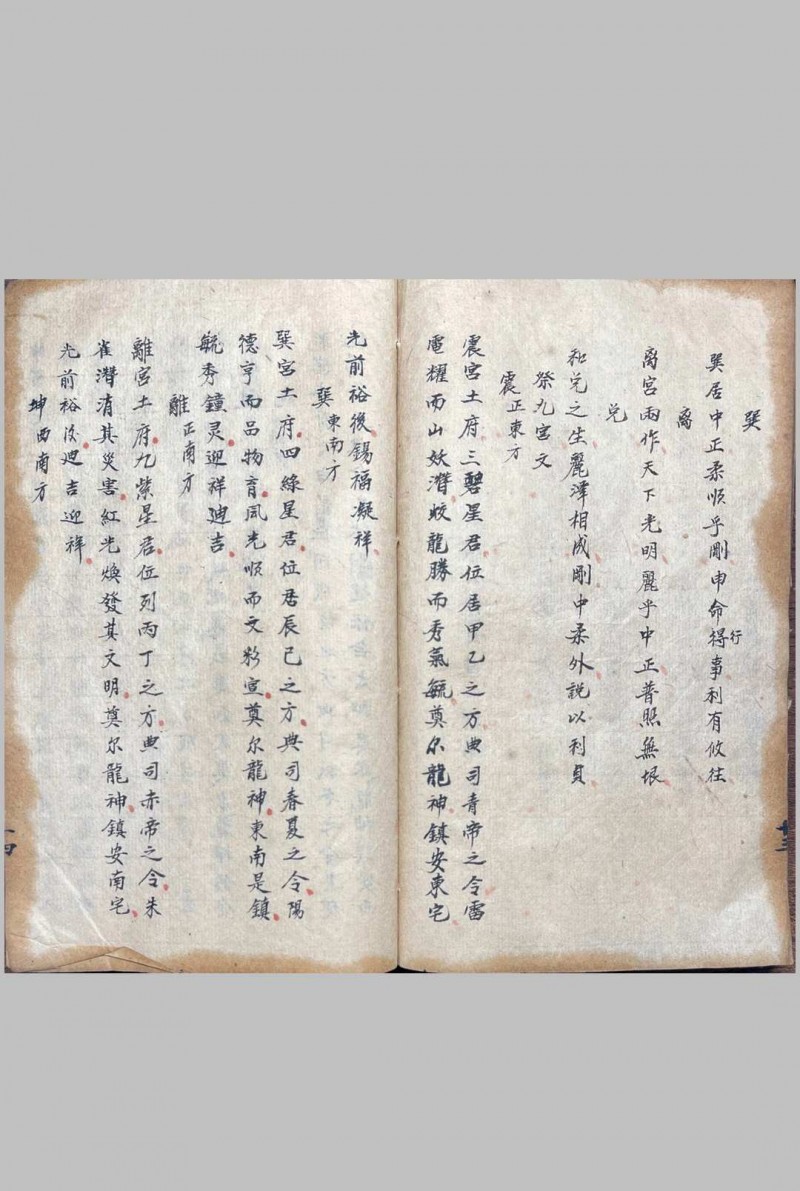 巽
巽居中正柔順乎剛申命得行事利有攸往
离
离宮兩作天下光明麗乎中正普照無垠
兌
和兌之生麗澤相成剛中柔外說以利貞
祭九宮文
震正東方
震宮土府三碧星君位居甲乙之方典司青帝之令雷
電耀而山妖潛蛟龍騰而秀氣毓奠尔龍神鎮安東宅
十三
光前裕後錫福凝祥
巽東南方
巽宮土府四綠星君位居辰巳之方典司春夏之令陽
德亨而品物育風光順而文彩宣奠尔龍神東南是鎮
毓秀鐘灵迎祥迪吉
離正南方
離宮土府九紫星君位列丙丁之方典司赤帝之令朱
雀潛消其災害紅光煥發其文明奠尔龍神鎮安南宅
光前裕后迎吉迎祥
坤西南方
十四